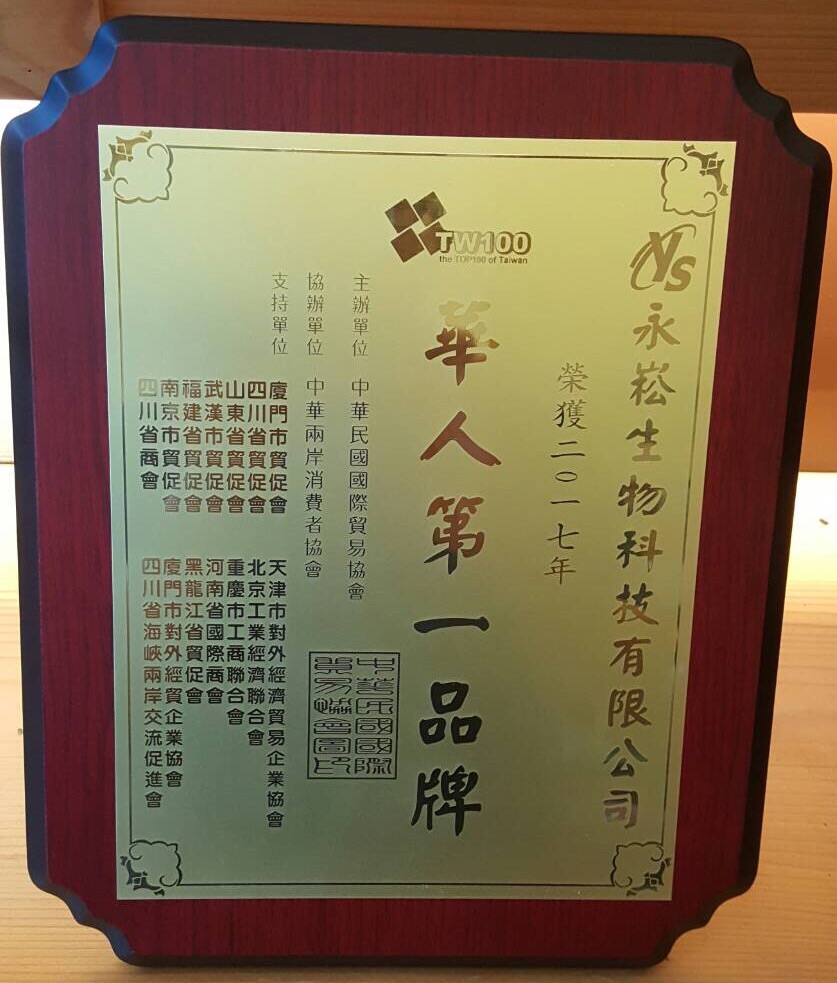 YS
永崧生物科技有限公司
榮獲二○一七年
TW100
the TOP100 of Taiwan
華人第一品牌
主辦單位 中華民國國際貿易協會
協辦單位 中華兩岸消費者協會
支持單位
廈門市貿促會 天津市對外經濟貿易企業協會
四川省貿促會 北京工業經濟聯合會
山東省貿促會 重慶市工商聯合會
武漢市貿促會 河南省國際商會
福建省貿促會 黑龍江省貿促會
南京市貿促會 廈門市對外經貿企業協會
四川省商會 四川省海峽兩岸交流促進會
中華民國國際
貿易協會圖記